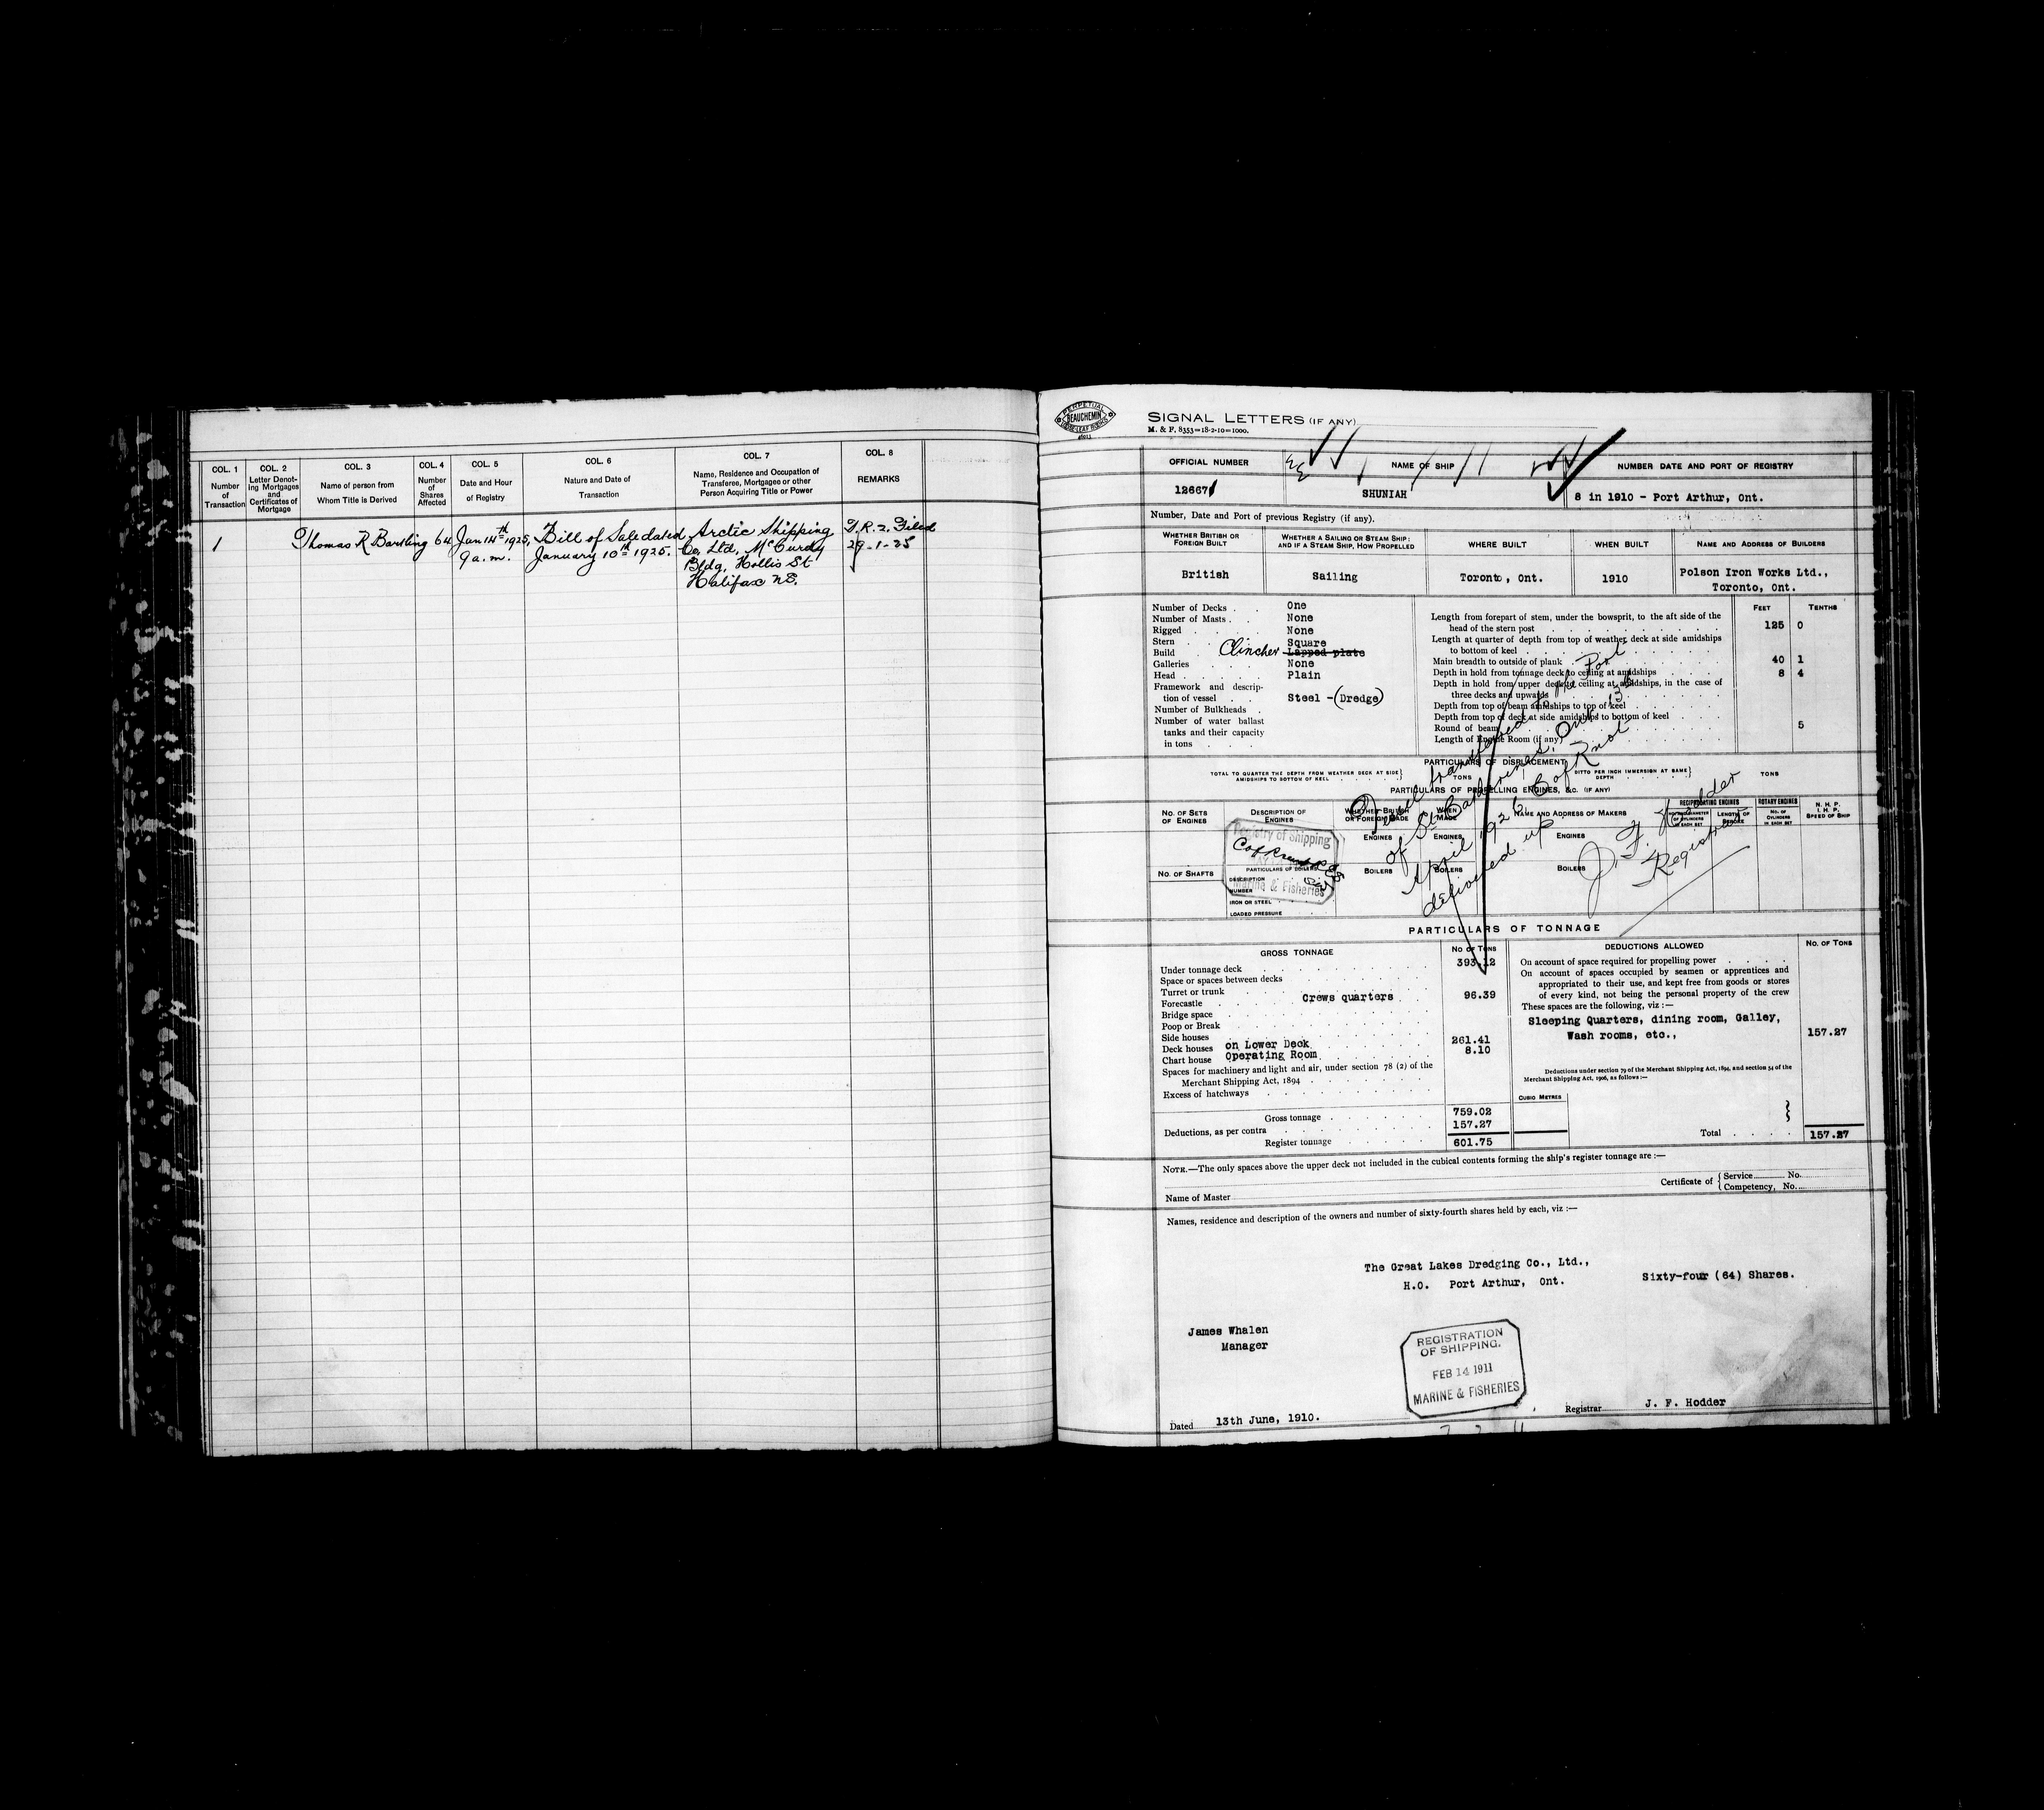 COL. 1 COL. 2 COL. 3 COL. 4 COL. 5 COL. 6 COL. 7 COL. 8
Number of Transaction
Letter Denoting Mortgages and Certificates of Mortgage
Name of person from Whom Title is Derived
Number of Shares Affected
Date and Hour of Registry
Nature and Date of Transaction
Name, Residence and Occupation of Transferee, Mortgagee or other Person Acquiring Title or Power
REMARKS
1 Thomas R 64 Jan 14th 1925, Bill of Sale dated Arctic Shipping T.R.2. Filed
9 a.m. January 10th 1925. Co, Ltd, McCurdy 29-1-25
Bldg, Hollis St
Halifax N.S.
PERPETUAL
BEAUCHEMIN
SIGNAL LETTERS (IF ANY)
M. & F. 8353=18-2-10=1000.
OFFICIAL NUMBER NAME OF SHIP NUMBER DATE AND PORT OF REGISTRY
126671 SHUNIAH 8 in 1910 - Port Arthur, Ont.
Number, Date and Port of previous Registry (if any).
WHETHER BRITISH OR FOREIGN BUILT
WHETHER A SAILING OR STEAM SHIP: AND IF A STEAM SHIP, HOW PROPELLED
WHERE BUILT
WHEN BUILT
NAME AND ADDRESS OF BUILDERS
British Sailing Toronto, Ont. 1910 Polson Iron Works Ltd.,
Toronto, Ont.
FEET TENTHS
Number of Decks . . One
Number of Masts . . None
Rigged . . . None
Stern . . . Square
Build . Clincher Lapped plate
Galleries . . . None
Head . . . . Plain
Framework and description of vessel . . Steel -(Dredge)
Number of Bulkheads .
Number of water ballast
tanks and their capacity
in tons . . .
Length from forepart of stem, under the bowsprit, to the aft side of the
head of the stern post 125 0
Length at quarter of depth from top of weather deck at side amidships
to bottom of keel
Main breadth to outside of plank 40 1
Depth in hold from tonnage deck to ceiling at amidships 8 4
Depth in hold from upper deck to ceiling at amidships, in the case of
three decks and upwards
Depth from top of beam amidships to top of keel
Depth from top of deck at side amidships to bottom of keel
Round of beam 5
Length of Engine Room (if any)
PARTICULARS OF DISPLACEMENT
TOTAL TO QUARTER THE DEPTH FROM WEATHER DECK AT SIDE AMIDSHIPS TO BOTTOM OF KEEL TONS DITTO PER INCH IMMERSION AT SAME DEPTH TONS
PARTICULARS OF PROPELLING ENGINES, &C. (IF ANY)
NO. OF SETS OF ENGINES
DESCRIPTION OF ENGINES
WHETHER BRITISH OR FOREIGN MADE
WHEN MADE
NAME AND ADDRESS OF MAKERS
RECIPROCATING ENGINES
LENGTH OF STROKE
ROTARY ENGINES
NO. OF CYLINDERS IN EACH SET
N. H. P.
I. H. P.
SPEED OF SHIP
ENGINES ENGINES ENGINES
NO. OF SHAFTS PARTICULARS OF BOILERS BOILERS BOILERS BOILERS
DESCRIPTION
NUMBER
IRON OR STEEL
LOADED PRESSURE
Registry of Shipping
Marine & Fisheries
Vessel transferred to the Port
of St. Catharines, Ont. 13th
April 1926 C of R not
delivered up
J. F. Hodder
Registrar
PARTICULARS OF TONNAGE
GROSS TONNAGE NO OF TONS DEDUCTIONS ALLOWED NO. OF TONS
Under tonnage deck 393.12
Space or spaces between decks
Turret or trunk
Forecastle Crews quarters 96.39
Bridge space
Poop or Break
Side houses
Deck houses on Lower Deck 261.41
Chart house Operating Room 8.10
Spaces for machinery and light and air, under section 78 (2) of the
Merchant Shipping Act, 1894
Excess of hatchways
Gross tonnage 759.02
Deductions, as per contra 157.27
Register tonnage 601.75
On account of space required for propelling power
On account of spaces occupied by seamen or apprentices and
appropriated to their use, and kept free from goods or stores
of every kind, not being the personal property of the crew
These spaces are the following, viz :—
Sleeping Quarters, dining room, Galley,
Wash rooms, etc., 157.27
Deductions under section 79 of the Merchant Shipping Act, 1894, and section 54 of the
Merchant Shipping Act, 1906, as follows :—
CUBIC METRES
Total 157.27
NOTE.—The only spaces above the upper deck not included in the cubical contents forming the ship's register tonnage are :—
Name of Master
Certificate of { Service No.
Competency, No.
Names, residence and description of the owners and number of sixty-fourth shares held by each, viz :—
The Great Lakes Dredging Co., Ltd.,
H.O. Port Arthur, Ont. Sixty-four (64) Shares.
James Whalen
Manager
REGISTRATION
OF SHIPPING.
FEB 14 1911
MARINE & FISHERIES
Dated 13th June, 1910. Registrar J. F. Hodder